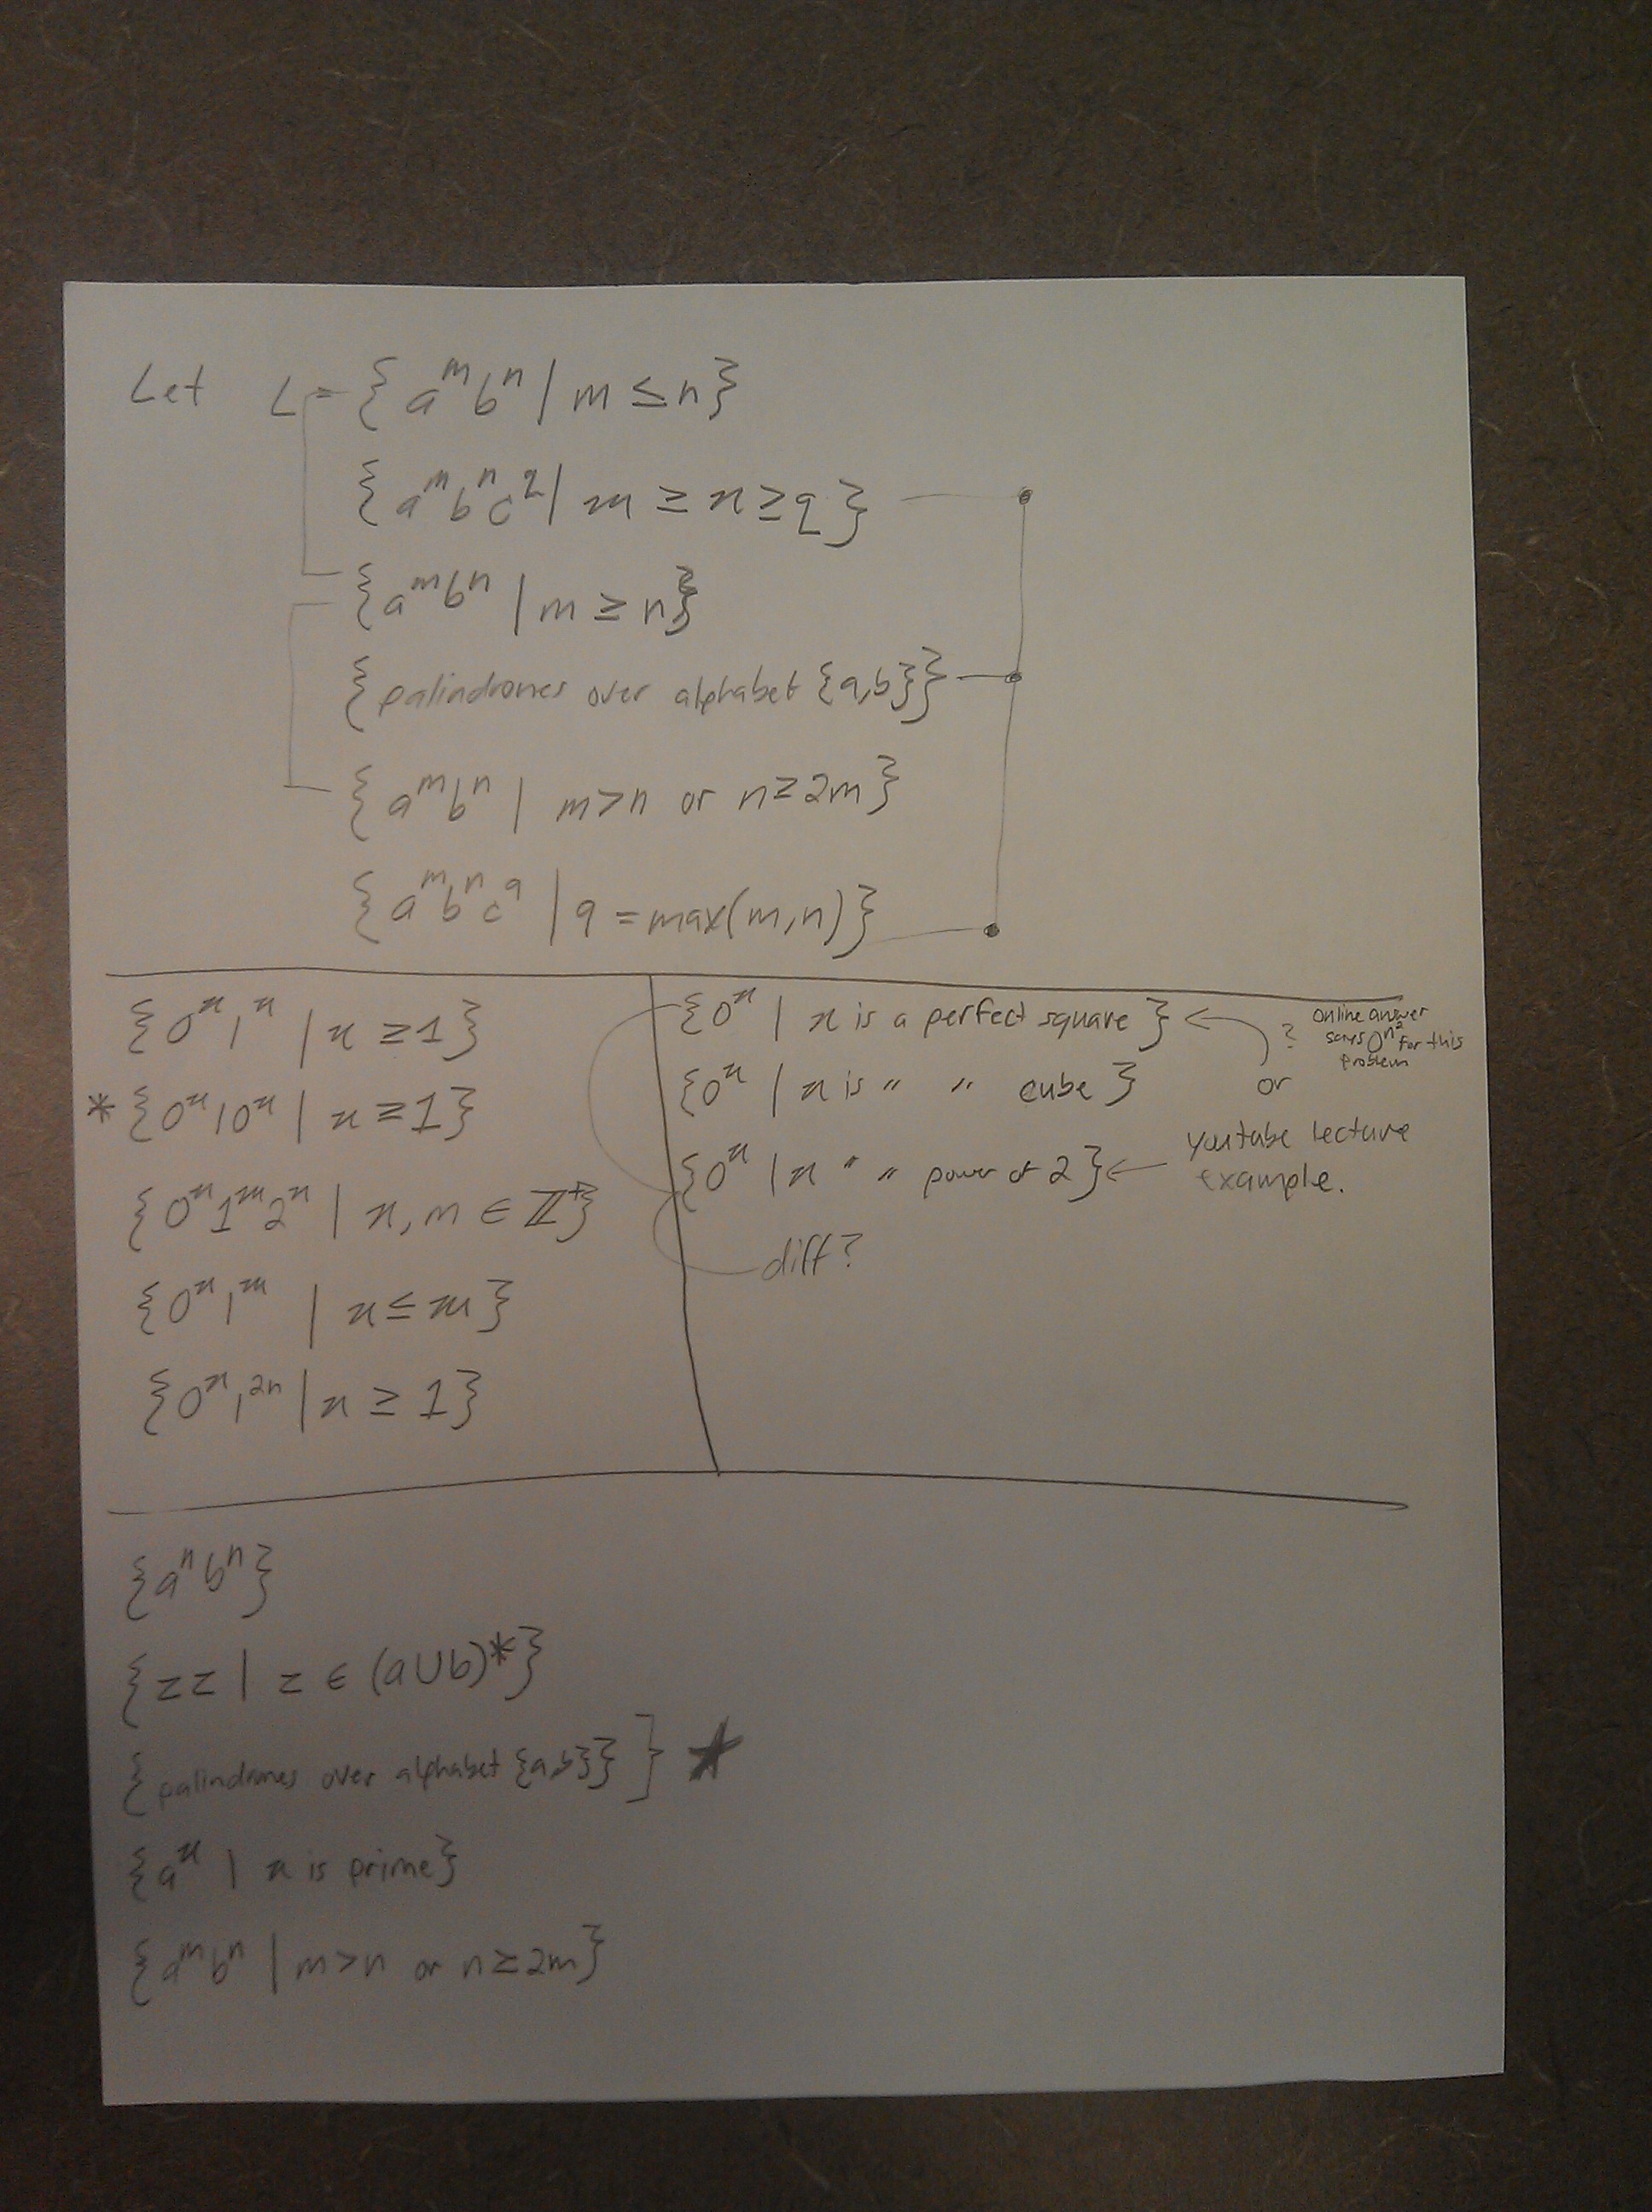 Let L = { a^m b^n | m ≤ n}
{ a^m b^n c^q | m ≥ n ≥ q }
{ a^m b^n | m ≥ n}
{ palindromes over alphabet {a,b}}
{ a^m b^n | m>n or n≥2m }
{ a^m b^n c^q | q = max(m,n) }
{ 0^n 1^n | n ≥ 1 }
* { 0^n 1 0^n | n ≥ 1 }
{ 0^n 1^m 2^n | n, m ∈ ℤ^+ }
{ 0^n 1^m | n ≤ m }
{ 0^n 1^2n | n ≥ 1 }
{ 0^n | n is a perfect square } ←
? online answer
says 0^n^2 for this
problem
{ 0^n | n is " " cube }
or
{ 0^n | n " " power of 2 } ←
youtube lecture
example.
diff?
{ a^n b^n }
{ zz | z ∈ (a∪b)* }
{ palindromes over alphabet {a,b}} } *
{ a^n | n is prime }
{ a^m b^n | m>n or n≥2m }